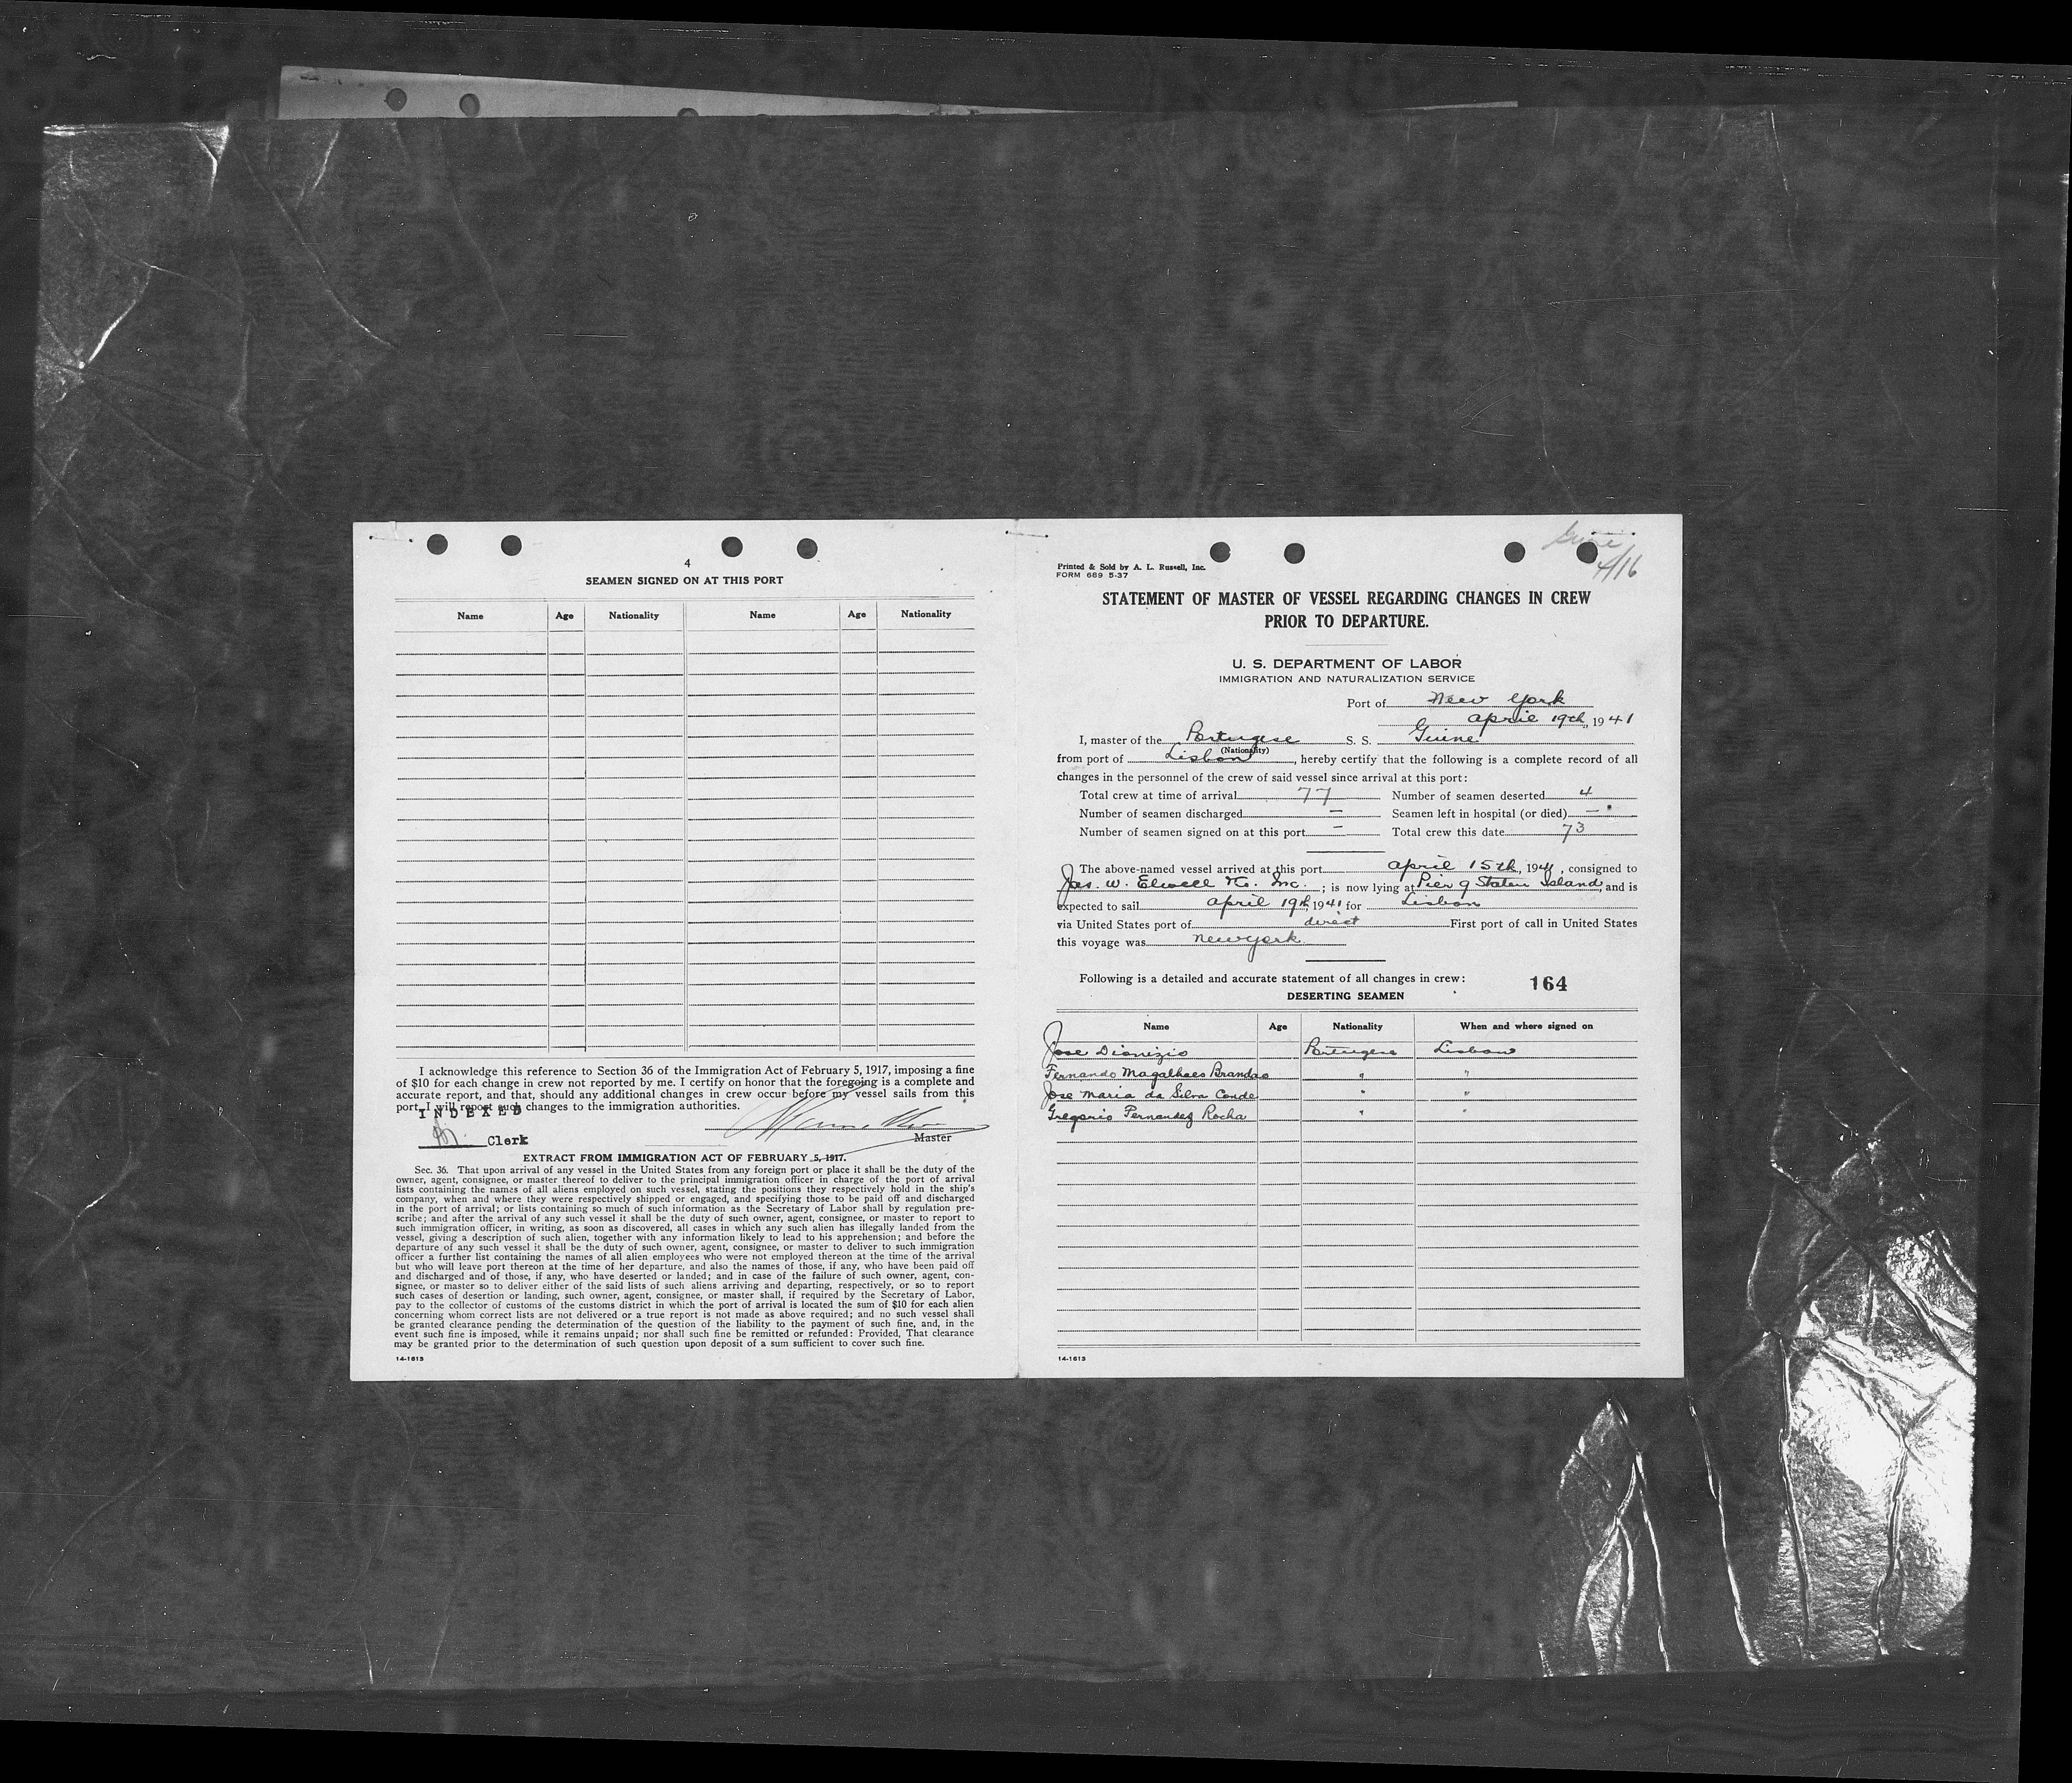 4
SEAMEN SIGNED ON AT THIS PORT
Name Age Nationality Name Age Nationality
I acknowledge this reference to Section 36 of the Immigration Act of February 5, 1917, imposing a fine
of $10 for each change in crew not reported by me. I certify on honor that the foregoing is a complete and
accurate report, and that, should any additional changes in crew occur before my vessel sails from this
port, I will report such changes to the immigration authorities.
INDEXED
Clerk
Master
EXTRACT FROM IMMIGRATION ACT OF FEBRUARY 5, 1917.
Sec. 36. That upon arrival of any vessel in the United States from any foreign port or place it shall be the duty of the
owner, agent, consignee, or master thereof to deliver to the principal immigration officer in charge of the port of arrival
lists containing the names of all aliens employed on such vessel, stating the positions they respectively hold in the ship's
company, when and where they were respectively shipped or engaged, and specifying those to be paid off and discharged
in the port of arrival; or lists containing so much of such information as the Secretary of Labor shall by regulation pre-
scribe; and after the arrival of any such vessel it shall be the duty of such owner, agent, consignee, or master to report to
such immigration officer, in writing, as soon as discovered, all cases in which any such alien has illegally landed from the
vessel, giving a description of such alien, together with any information likely to lead to his apprehension; and before the
departure of any such vessel it shall be the duty of such owner, agent, consignee, or master to deliver to such immigration
officer a further list containing the names of all alien employees who were not employed thereon at the time of the arrival
but who will leave port thereon at the time of her departure, and also the names of those, if any, who have been paid off
and discharged and of those, if any, who have deserted or landed; and in case of the failure of such owner, agent, con-
signee, or master so to deliver either of the said lists of such aliens arriving and departing, respectively, or so to report
such cases of desertion or landing, such owner, agent, consignee, or master shall, if required by the Secretary of Labor,
pay to the collector of customs of the customs district in which the port of arrival is located the sum of $10 for each alien
concerning whom correct lists are not delivered or a true report is not made as above required; and no such vessel shall
be granted clearance pending the determination of the question of the liability to the payment of such fine, and, in the
event such fine is imposed, while it remains unpaid; nor shall such fine be remitted or refunded: Provided, That clearance
may be granted prior to the determination of such question upon deposit of a sum sufficient to cover such fine.
14-1613
Guine
4/16
Printed & Sold by A. L. Russell, Inc.
FORM 689 5-37
STATEMENT OF MASTER OF VESSEL REGARDING CHANGES IN CREW
PRIOR TO DEPARTURE.
U. S. DEPARTMENT OF LABOR
IMMIGRATION AND NATURALIZATION SERVICE
Port of New York
April 19th, 1941
I, master of the Portugese S. S. Guine
(Nationality)
from port of Lisbon, hereby certify that the following is a complete record of all
changes in the personnel of the crew of said vessel since arrival at this port:
Total crew at time of arrival 77 Number of seamen deserted 4
Number of seamen discharged — Seamen left in hospital (or died) —
Number of seamen signed on at this port — Total crew this date 73
The above-named vessel arrived at this port April 15th, 1941, consigned to
Jas. W. Elwell & Co. Inc.; is now lying at Pier 9 Staten Island, and is
expected to sail April 19th, 1941 for Lisbon
via United States port of direct First port of call in United States
this voyage was New york
Following is a detailed and accurate statement of all changes in crew: 164
DESERTING SEAMEN
Name Age Nationality When and where signed on
Jose Dionizio Portugese Lisbon
Fernando Magalhaes Brandao " "
Jose Maria da Silva Conde " "
Gregorio Fernandez Rocha " "
14-1613